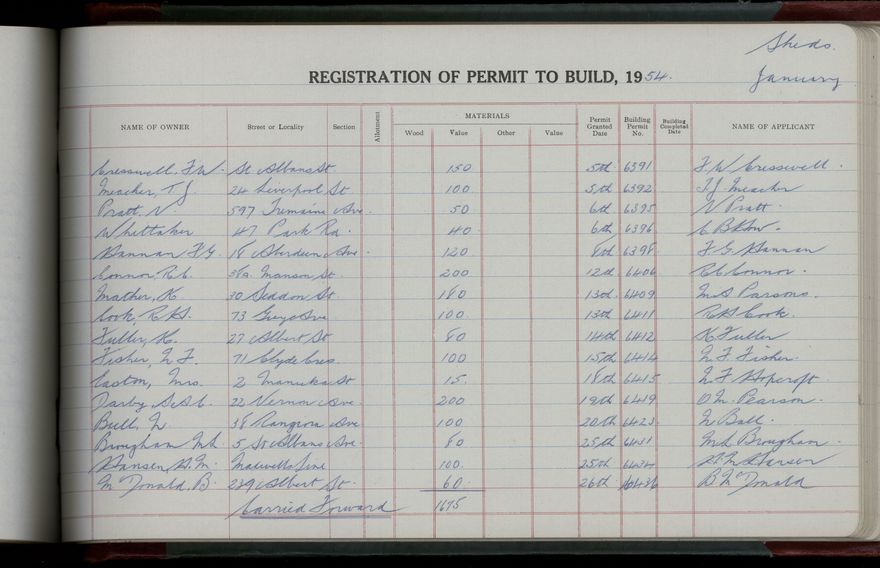 Sheds.
REGISTRATION OF PERMIT TO BUILD, 1954.
January
NAME OF OWNER Street or Locality Section Allotment MATERIALS Wood Value Other Value Permit Granted Date Building Permit No. Building Completed Date NAME OF APPLICANT
Cresswell, F.W. St Albans St 150 5th 6391 F W Cresswell.
Meacher, T J. 24 Liverpool St 100 5th 6392 T J. Meacher
Pratt, N. 597 Tremaine Ave. 50 6th 6395 N Pratt.
Whittaker 47 Park Rd. 40. 6th 6396
Hannan F G. 18 Aberdeen Ave. 120 8th 6398 F G. Hannan
Connor, R C. 58a Manson St. 200 12th 6406 R C Connor.
Mather, K. 30 Seddon St. 180 13th 6409 Parsons.
Cook, R H S. 73 Ave. 100. 13th 6411 Cook.
Fuller, K. 27 Albert St 80 14th 6412 K Fuller
Fisher, M F. 71 Clyde Cres. 100 15th 6414 M F Fisher.
Easton, Mrs. 2 Manuka St 15. 18th 6415 Hopcroft.
Darby, 22 Vernon Ave. 200 19th 6419 O M. Pearson.
Bull, N. 38 Rangiora Ave 100 20th 6423. N Ball.
Brougham M L 5 St Albans Ave. 80 25th 6431 M L Brougham.
Hansen, H. M. Maxwells Line 100. 25th 6434 H. M Hansen
McDonald, B. 239 Albert St. 60. 26th 6436 B. McDonald
Carried Forward 1695